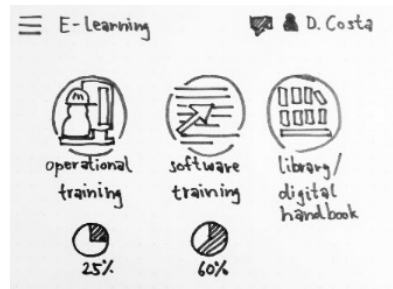 E-Learning
D. Costa
operational
training
software
training
library/
digital
handbook
25%
60%